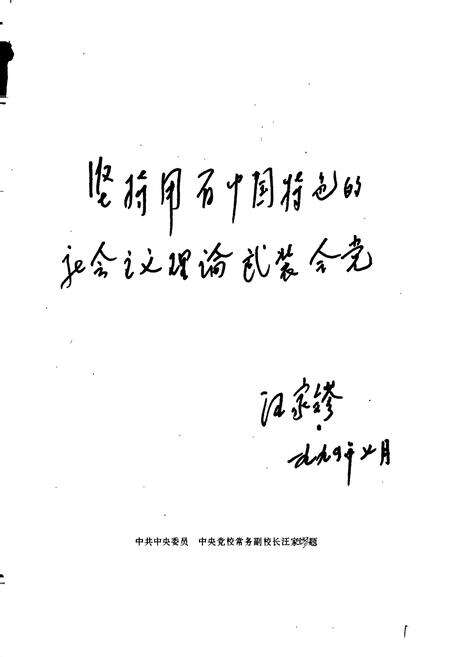 坚持用有中国特色的
社会主义理论武装全党
汪家镠
一九九四年七月
中共中央委员 中央党校常务副校长汪家镠题
1